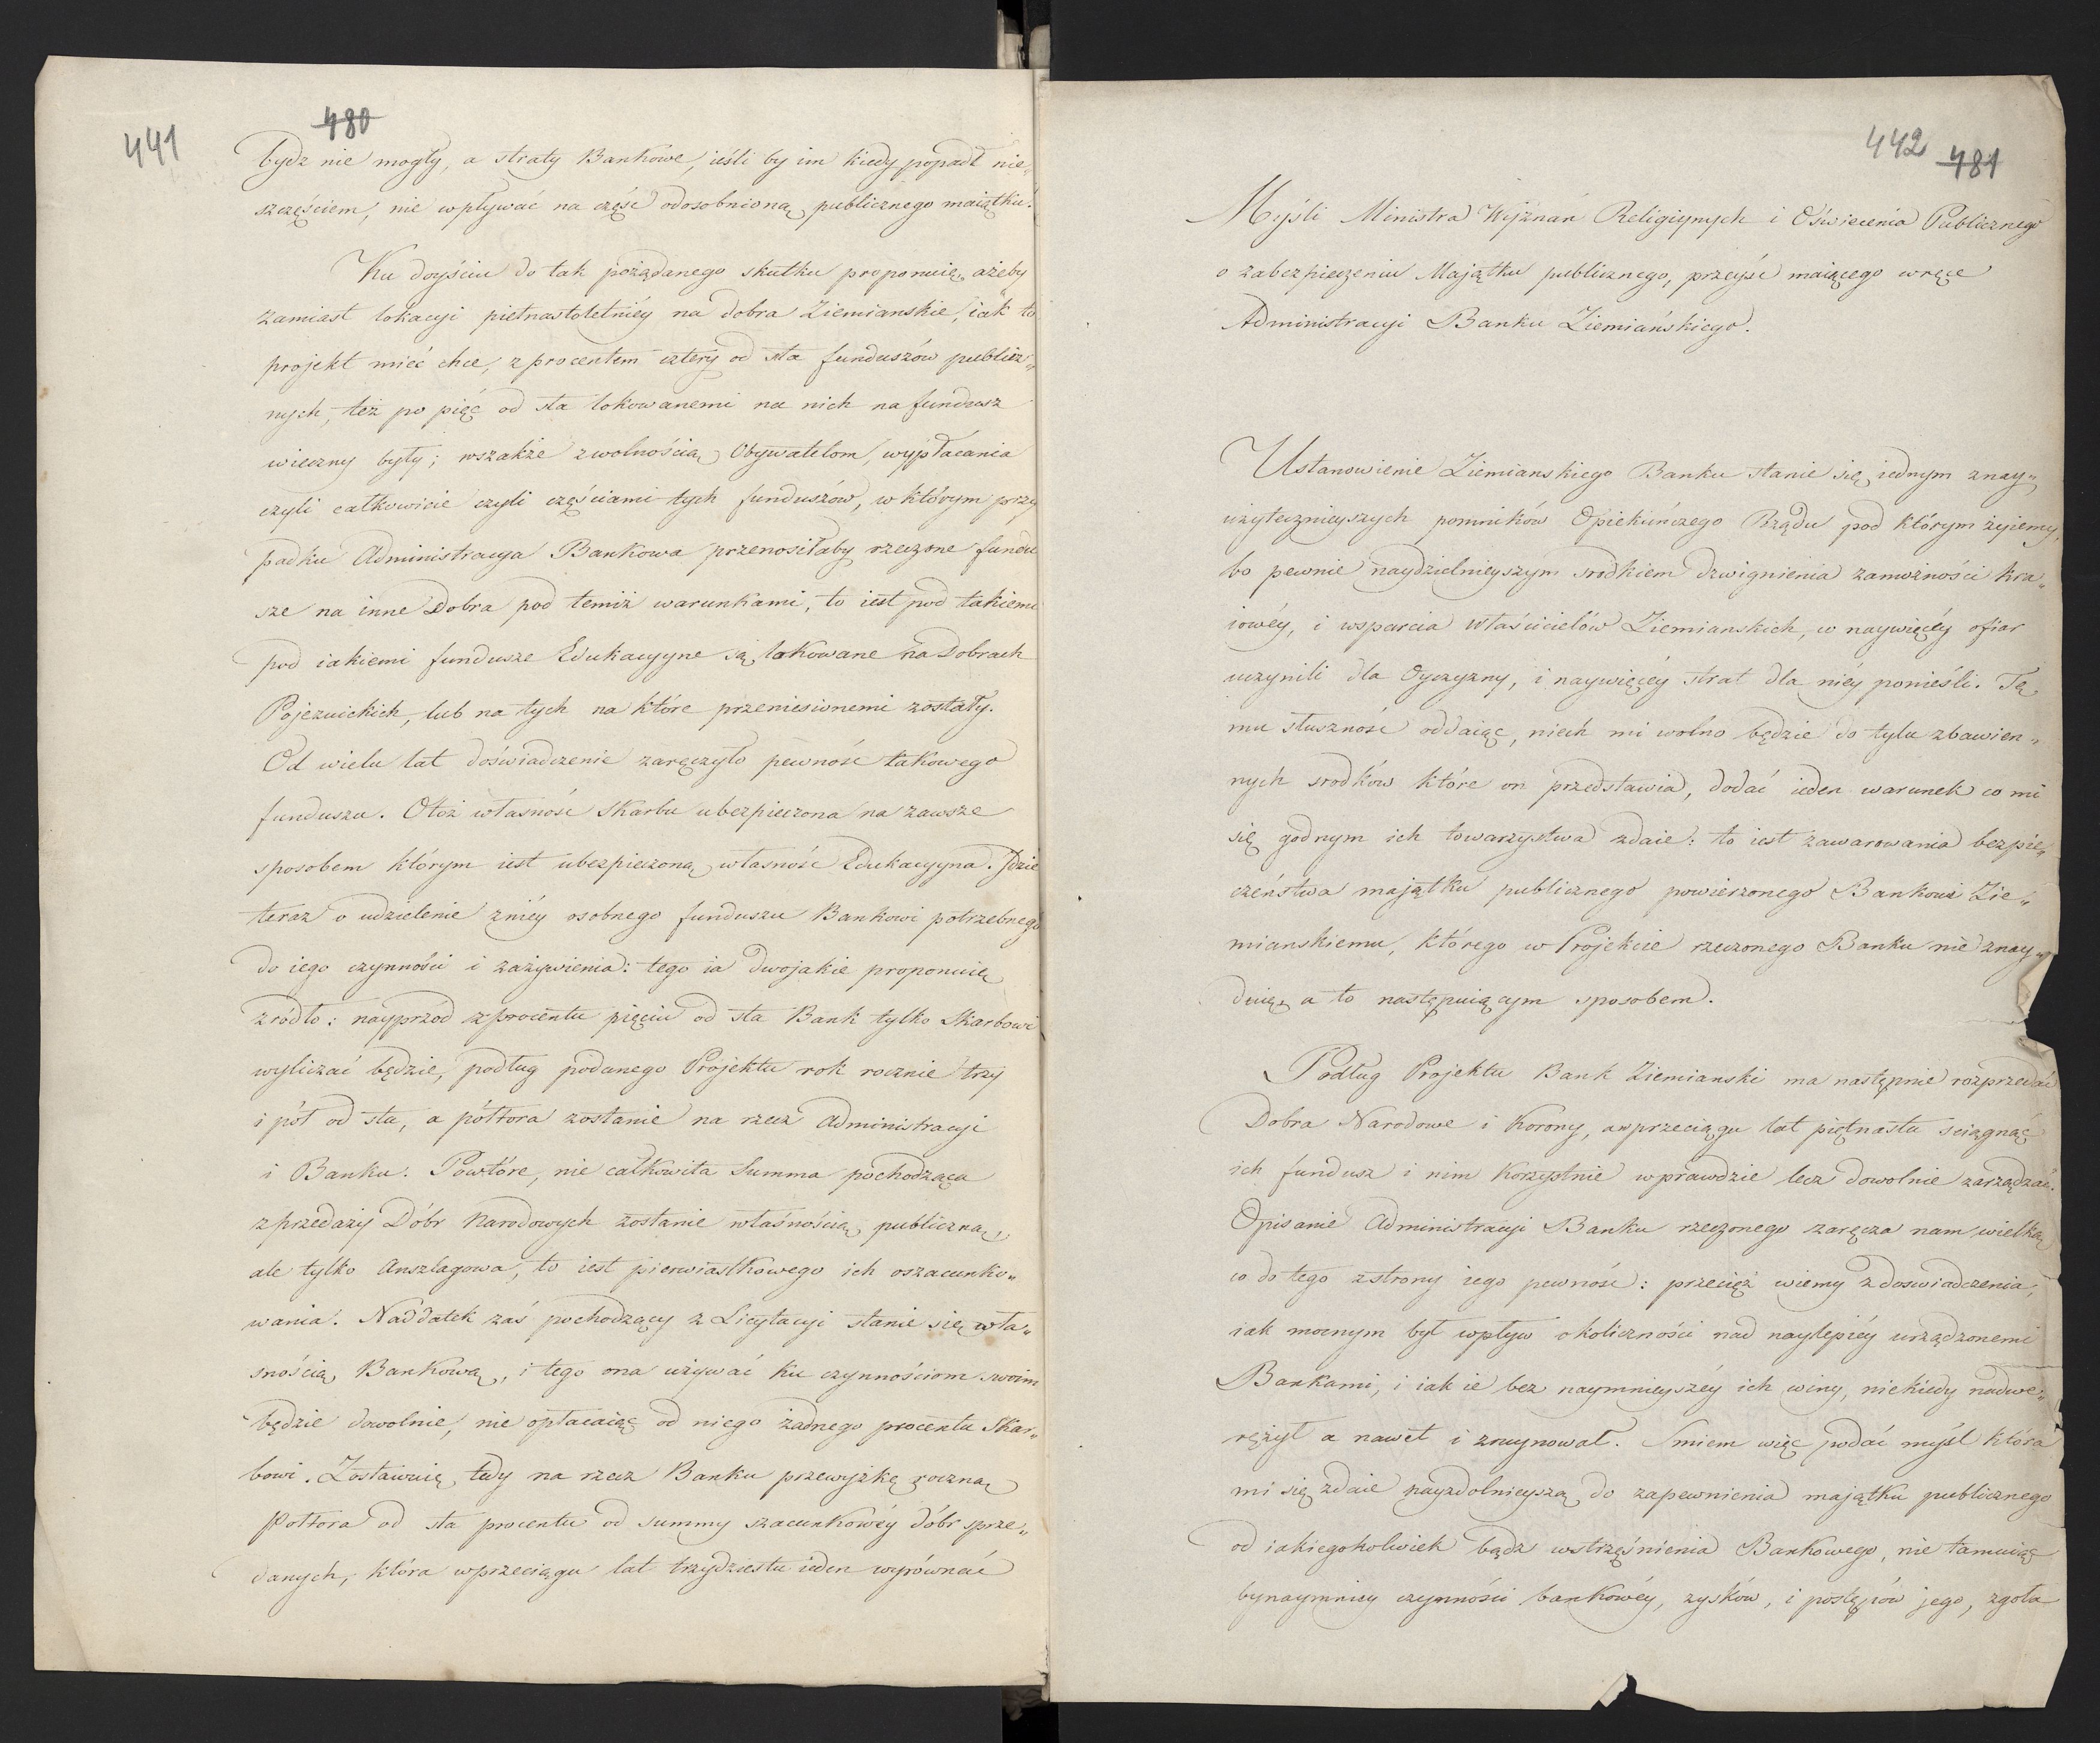 441
480
bydz nie mogły, a straty Bankowe, ieśli by im kiedy popadł nie„
szczęściem, nie wpływać na część odosobnioną publicznego maiątku.
Ku doyściu do tak pożądanego skutku proponuię, ażeby
zamiast lokacyi pietnastoletniéy na dobra Ziemianskie, iak to
projekt mieć chce, z procentem cztery od sta funduszów publicz„
nych, też po pięć od sta lokowanemi na nich na fundusz
wieczny były; wszakże zwolnością Obywatelom, wypłacania
czyli całkowicie czyli częściami tych funduszów, w którym przy
padku Administracya Bankowa przenosiłaby rzeczone fundu
sze na inne Dobra pod temiż warunkami, to iest pod takiemi
pod iakiemi fundusze Edukacyyne są lokowane na Dobrach
Pojezuickich, lub na tych na które przeniesionemi zostały.
Od wielu lat doświadczenie zaręczyło pewność takowego
funduszu. Otoż własność Skarbu ubezpieczona na zawsze
sposobem którym iest ubezpieczoną własność Edukacyyna. Jdzie
teraz o udzielenie zniéy osobnego funduszu Bankowi potrzebnego
do iego czynności i zażywienia: tego ia dwojakie proponuię
zródło: nayprzód z procentu pięciu od sta Bank tylko Skarbowi
wyliczać będzie, podług podanego Projektu rok rocznie trzy
i pół od sta, a półtora zostanie na rzecz Administracyi
i Banku: Powtóre, nie całkowita Summa pochodząca
z przedaży Dóbr Narodowych zostanie własnością publiczną,
ale tylko Anszlagowa, to iest pierwiastkowego ich oszacunko„
wania. Naddatek zaś pochodzący z Licytacyi stanie się wła„
snością Bankową, i tego ona używać ku czynnościom swoim
będzie dowolnie, nie opłacaiąc od niego żadnego procentu Skar„
bowi. Zostawuię tedy na rzecz Banku przewyżkę roczną
półtora od sta procentu od summy szacunkowéy dóbr sprze„
danych, która w przeciągu lat trzydziestu ieden wyrównać
442
481
Myśli Ministra Wyznań Religiynych i Oświecenia Publicznego
o zabezpieczeniu Majątku publicznego, przeyść maiącego w ręce
Administracyi Banku Ziemiańskiego.
Ustanowienie Ziemianskiego Banku stanie się iednym z nay„
użytecznieyszych pomników Opiekuńczego Rządu pod którym żyiemy,
bo pewnie naydzielnieyszym srodkiem dzwignienia zamożności kra„
iowéy, i wsparcia właścicielów Ziemianskich, co naywięcéy ofiar
uczynili dla Oyczyzny, i naywięcéy strat dla niéy ponieśli. Tę
mu słuszność oddaiąc, niech mi wolno będzie do tylu zbawien„
nych srodków które on przedstawia, dodać ieden warunek co mi
się godnym ich towarzystwa zdaie: to iest zawarowania bezpie„
czeństwa majątku publicznego powierzonego Bankowi Zie„
mianskiemu, którego w Projekcie rzeczonego Banku nie znay„
duię, a to następuiącym sposobem.
Podług Projektu Bank Ziemianski ma następnie rozprzedać
Dobra Narodowe i Korony, a w przeciągu lat piętnastu sciągnąć
ich fundusz i nim korzystnie wprawdzie lecz dowolnie zarządzać.
Opisanie Administracyi Banku rzeczonego zaręcza nam wielką
co do tego zstrony iego pewność: przecięż wiemy z doswiadczenia,
iak mocnym był wpływ okoliczności nad naylepiéy urządzonemi
Bankami, i iak ie bez naymnieyszéy ich winy, niekiedy nadwe„
rężył a nawet i zruynował. Smiem więc podać myśl która
mi się zdaie nayzdolnieyszą do zapewnienia majątku publicznego
od iakiegokolwiek bądz wstrząśnienia Bankowego, nie tamuiąc
bynaymniey czynności bankowéy, zysków, i postępów jego, zgoła